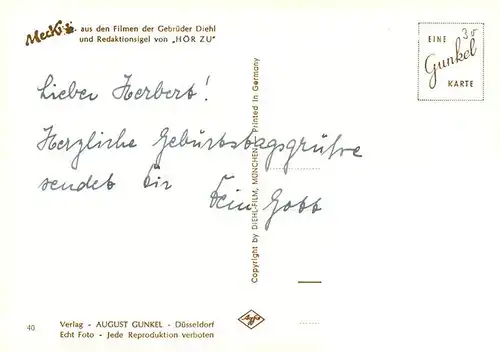 Mecki aus den Filmen der Gebrüder Diehl
und Redaktionsigel von „HÖR ZU"
EINE
Gunkel
KARTE
30
Lieber Herbert!
Herzliche Geburtstagsgrüße
sendet Dir Dein Gott
Copyright by DIEHL-FILM, MÜNCHEN · Printed in Germany
40
Verlag - AUGUST GUNKEL - Düsseldorf
Echt Foto - Jede Reproduktion verboten
Agfa